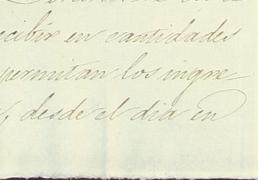 cibir en cantidades
permitan los ingre
, desde el dia en